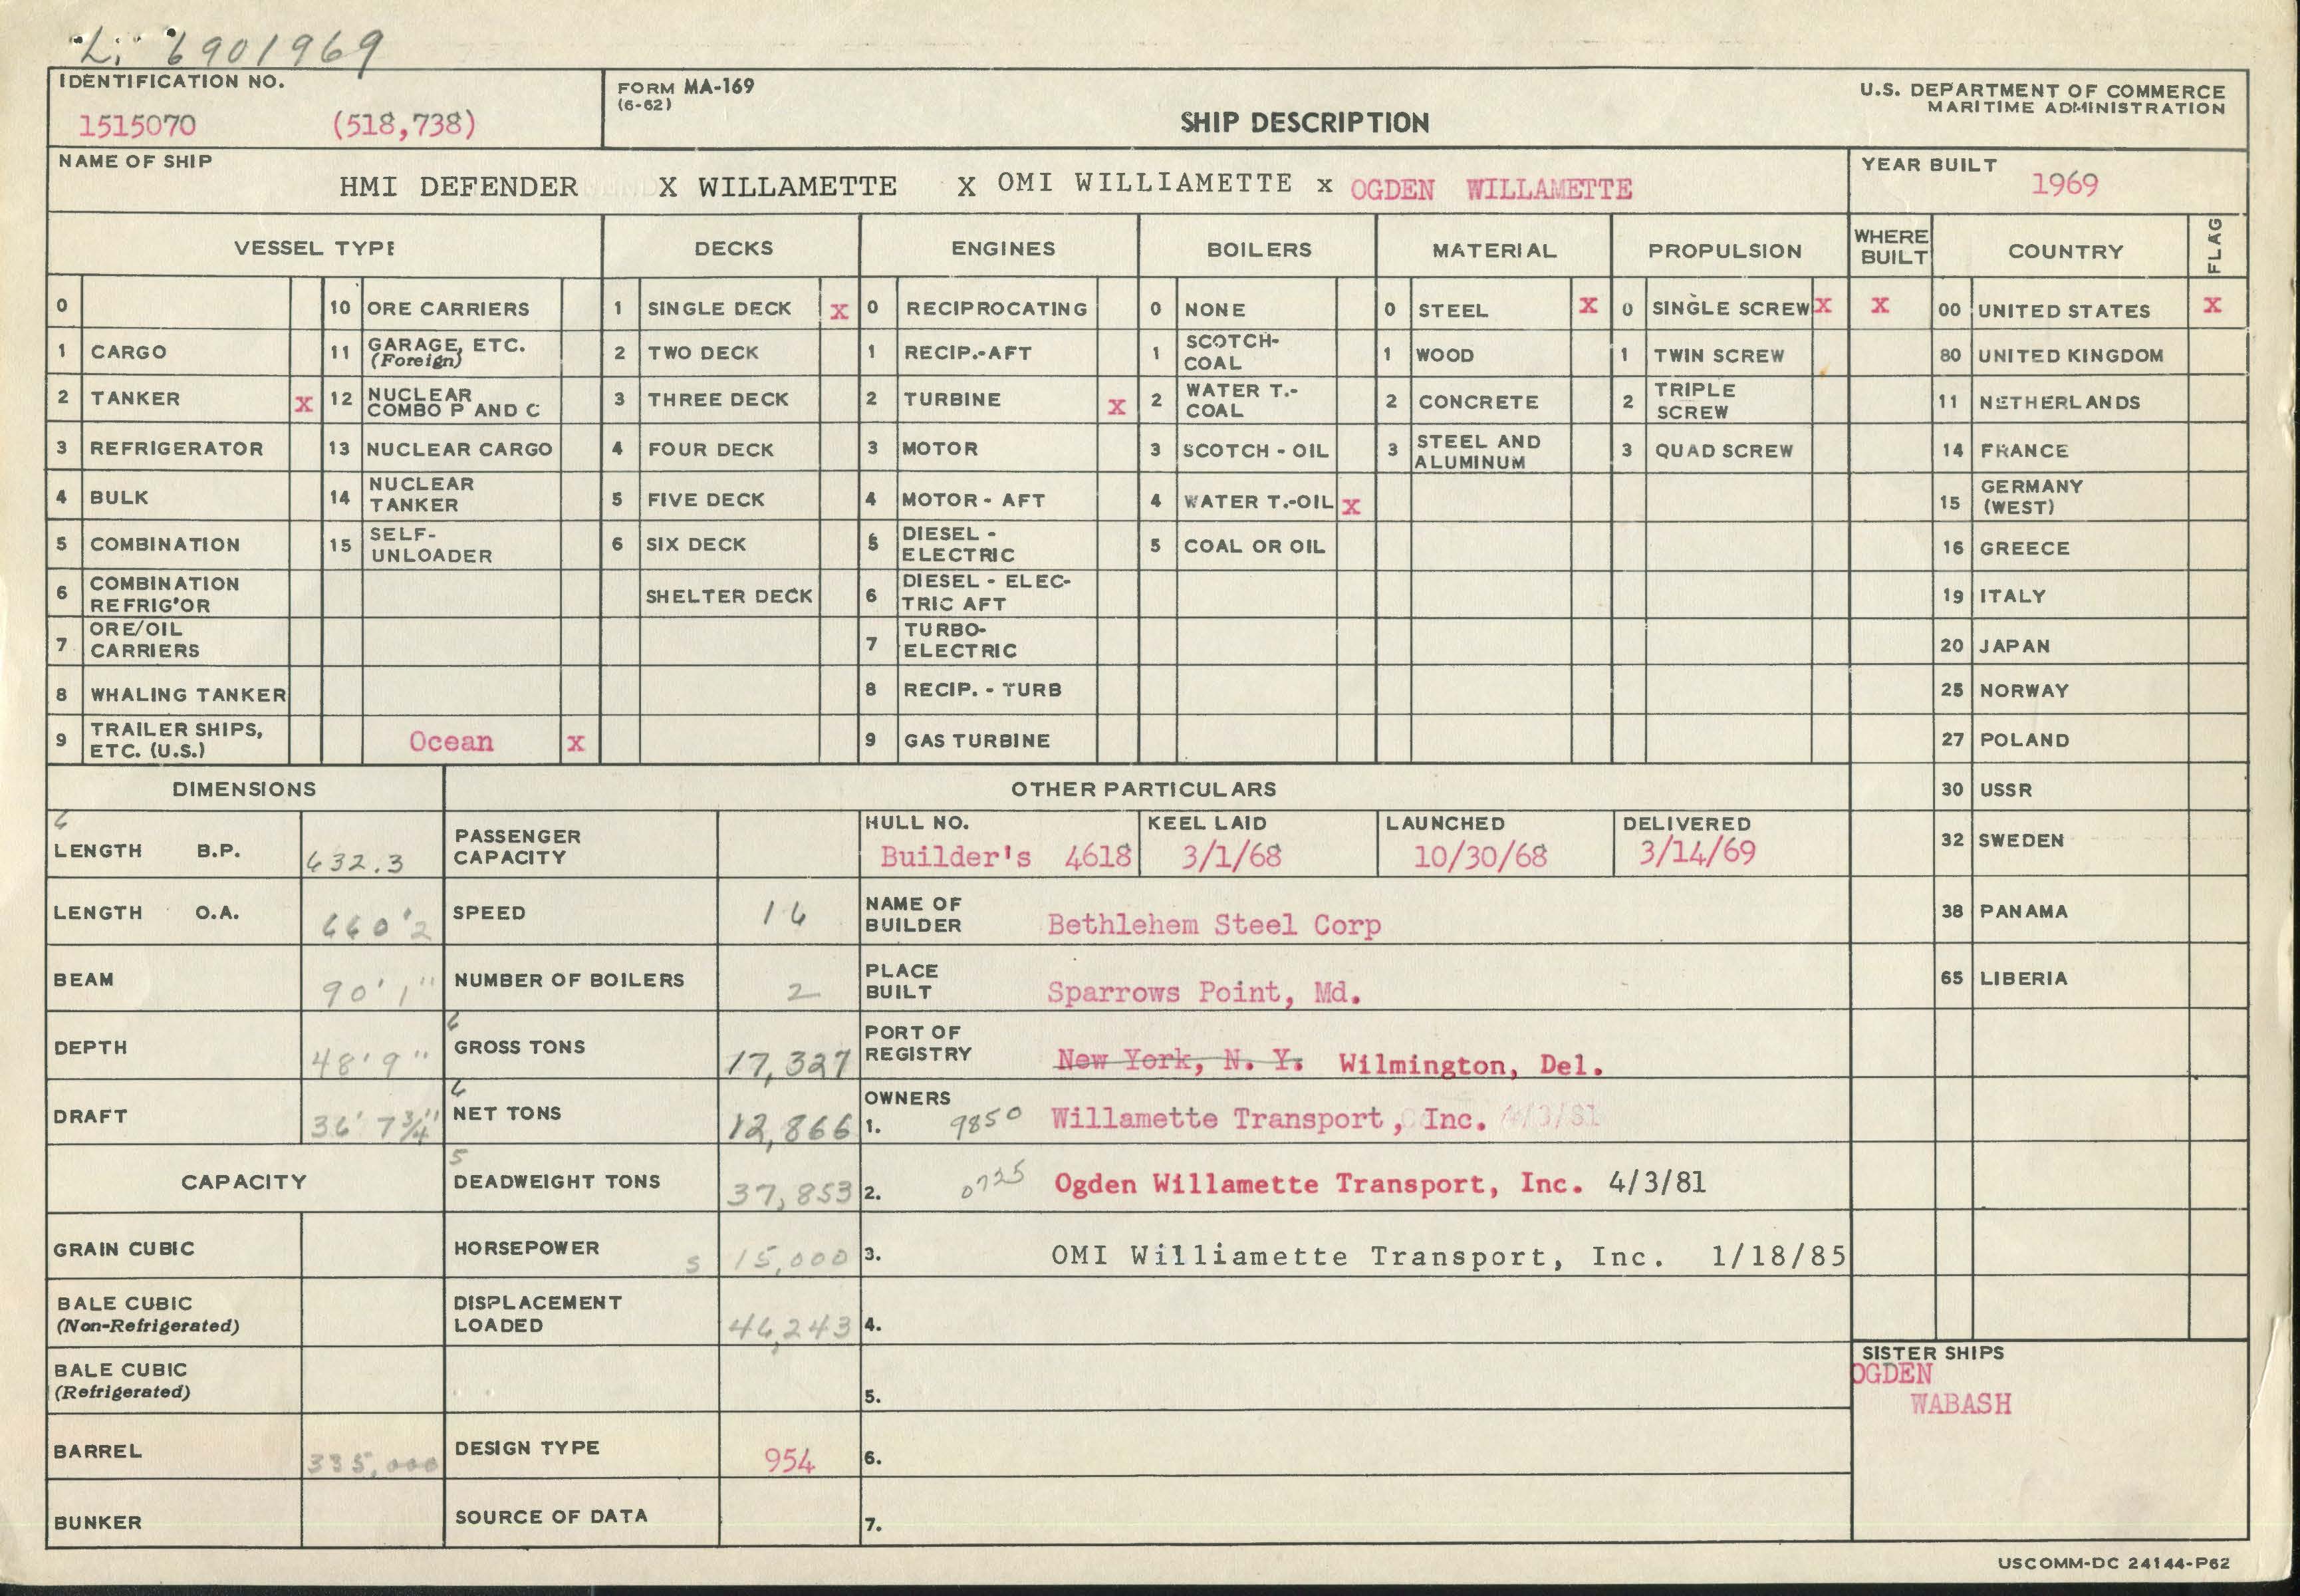 L. 6901969
IDENTIFICATION NO.
1515070 (518,738)
FORM MA-169
(6-62)
SHIP DESCRIPTION
U.S. DEPARTMENT OF COMMERCE
MARITIME ADMINISTRATION
NAME OF SHIP
HMI DEFENDER X WILLAMETTE X OMI WILLIAMETTE x OGDEN WILLAMETTE
YEAR BUILT
1969
VESSEL TYPE DECKS ENGINES BOILERS MATERIAL PROPULSION WHERE BUILT COUNTRY FLAG
0 10 ORE CARRIERS 1 SINGLE DECK x 0 RECIPROCATING 0 NONE 0 STEEL x 0 SINGLE SCREW x x 00 UNITED STATES x
1 CARGO 11 GARAGE, ETC. (Foreign) 2 TWO DECK 1 RECIP.-AFT 1 SCOTCH-COAL 1 WOOD 1 TWIN SCREW 80 UNITED KINGDOM
2 TANKER x 12 NUCLEAR COMBO P AND C 3 THREE DECK 2 TURBINE x 2 WATER T.-COAL 2 CONCRETE 2 TRIPLE SCREW 11 NETHERLANDS
3 REFRIGERATOR 13 NUCLEAR CARGO 4 FOUR DECK 3 MOTOR 3 SCOTCH - OIL 3 STEEL AND ALUMINUM 3 QUAD SCREW 14 FRANCE
4 BULK 14 NUCLEAR TANKER 5 FIVE DECK 4 MOTOR - AFT 4 WATER T.-OIL x 15 GERMANY (WEST)
5 COMBINATION 15 SELF-UNLOADER 6 SIX DECK 5 DIESEL - ELECTRIC 5 COAL OR OIL 16 GREECE
6 COMBINATION REFRIG'OR SHELTER DECK 6 DIESEL - ELECTRIC AFT 19 ITALY
7 ORE/OIL CARRIERS 7 TURBO-ELECTRIC 20 JAPAN
8 WHALING TANKER 8 RECIP. - TURB 25 NORWAY
9 TRAILER SHIPS, ETC. (U.S.) Ocean x 9 GAS TURBINE 27 POLAND
DIMENSIONS OTHER PARTICULARS 30 USSR
6
LENGTH B.P. 632.3 PASSENGER CAPACITY HULL NO. Builder's 4618 KEEL LAID 3/1/68 LAUNCHED 10/30/68 DELIVERED 3/14/69 32 SWEDEN
LENGTH O.A. 660'2 SPEED 16 NAME OF BUILDER Bethlehem Steel Corp 38 PANAMA
BEAM 90'1" NUMBER OF BOILERS 2 PLACE BUILT Sparrows Point, Md. 65 LIBERIA
6
DEPTH 48'9" GROSS TONS 17,327 PORT OF REGISTRY New York, N. Y. Wilmington, Del.
6
DRAFT 36' 7¾" NET TONS 12,866 OWNERS 1. 9850 Willamette Transport, Inc. 4/3/81
5
CAPACITY DEADWEIGHT TONS 37,853 2. 0725 Ogden Willamette Transport, Inc. 4/3/81
GRAIN CUBIC HORSEPOWER S 15,000 3. OMI Williamette Transport, Inc. 1/18/85
BALE CUBIC (Non-Refrigerated) DISPLACEMENT LOADED 46,243 4.
SISTER SHIPS
OGDEN
WABASH
BALE CUBIC (Refrigerated) 5.
BARREL 335,000 DESIGN TYPE 954 6.
BUNKER SOURCE OF DATA 7.
USCOMM-DC 24144-P62